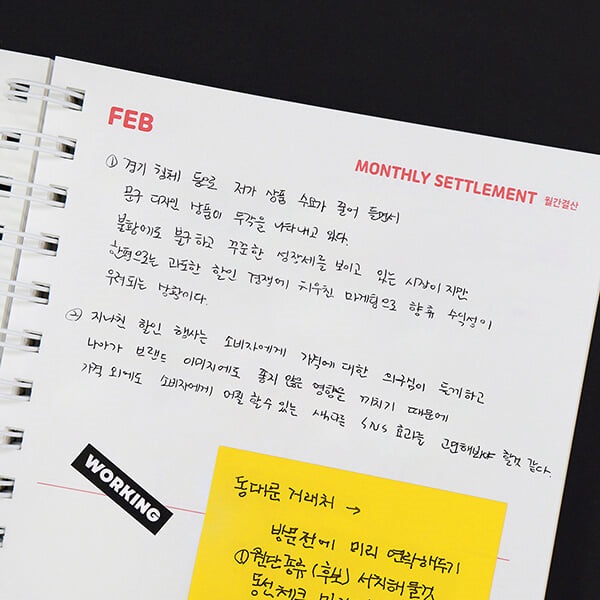 FEB
MONTHLY SETTLEMENT 월간결산
① 경기 침체 등으로 저가 상품 수요가 줄어 들면서
문구 디자인 상품이 두각을 나타내고 있다.
불황에도 불구하고 꾸준한 성장세를 보이고 있는 시장이지만
한편으로는 과도한 할인 경쟁에 치우친 마케팅으로 향후 수익성이
우려되는 상황이다.
② 지나친 할인 행사는 소비자에게 가격에 대한 의구심이 듣기하고
나아가 브랜드 이미지에도 좋지 않은 영향을 끼치기 때문에
가격 외에도 소비자에게 어필 할 수 있는 색다른 SNS 효과를 고민해봐야 할것 같다.
WORKING
동대문 거래처 →
방문전에 미리 연락해두기
① 원단종류 (후보) 서치해 둘것
동선체크